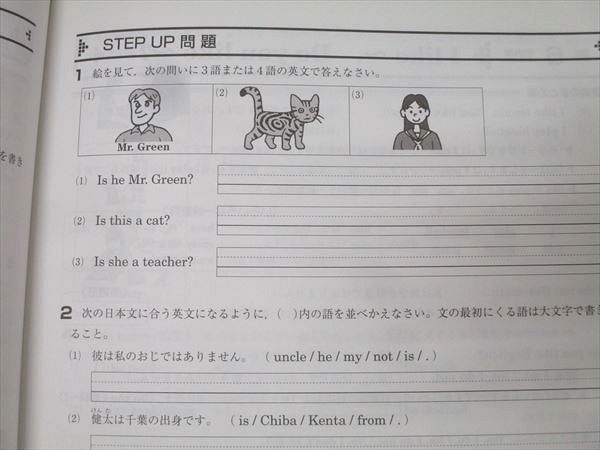 STEP UP 問題
1 絵を見て，次の問いに3語または4語の英文で答えなさい。
(1) (2) (3)
Mr. Green
(1) Is he Mr. Green?
(2) Is this a cat?
(3) Is she a teacher?
2 次の日本文に合う英文になるように，( )内の語を並べかえなさい。文の最初にくる語は大文字で書き
ること。
(1) 彼は私のおじではありません。 ( uncle / he / my / not / is / . )
けん た
(2) 健太は千葉の出身です。 ( is / Chiba / Kenta / from / . )
を書き